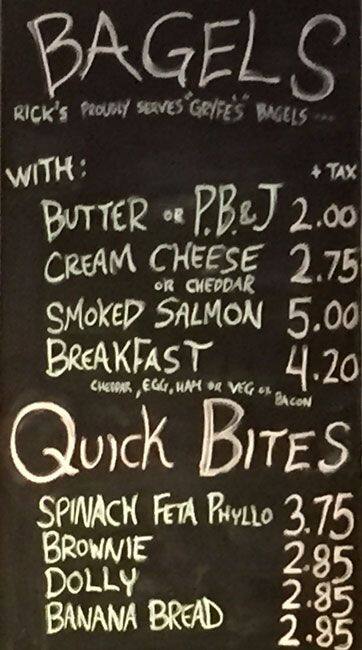 BAGELS
RICK'S PROUDLY SERVES "GRYFE'S" BAGELS ...
WITH: + TAX
BUTTER OR P.B.&J 2.00
CREAM CHEESE 2.75
OR CHEDDAR
SMOKED SALMON 5.00
BREAKFAST 4.20
CHEDDAR, EGG, HAM OR VEG OR BACON
QUICK BITES
SPINACH FETA PHYLLO 3.75
BROWNIE 2.85
DOLLY 2.85
BANANA BREAD 2.85